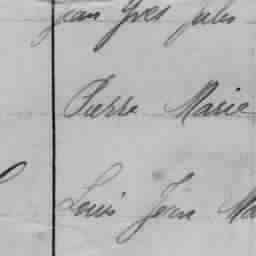 Jean Yves Jules
Pierre Marie
Louis Jean Ma